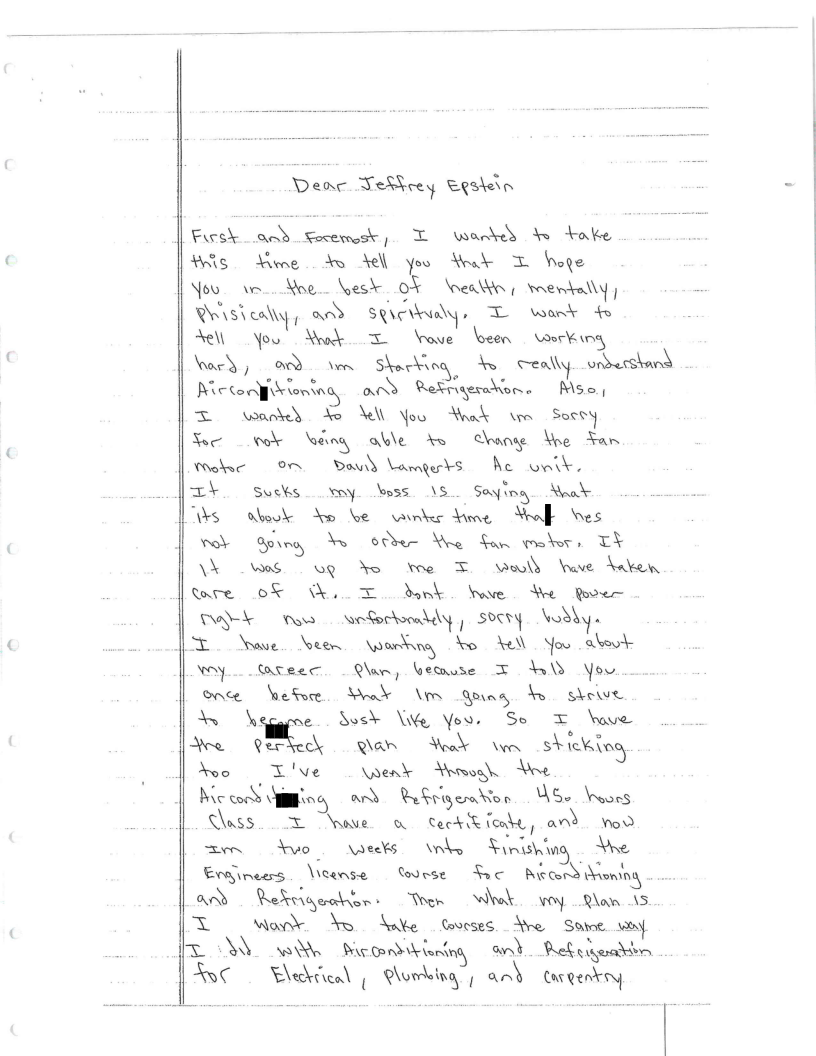 Dear Jeffrey Epstein
First and Foremost, I wanted to take
this time to tell you that I hope
you in the best of health, mentally,
Phisically, and spiritualy. I want to
tell you that I have been working
hard, and im starting to really understand
Aircon itioning and Refrigeration. Also,
I wanted to tell you that im sorry
for not being able to change the fan
motor on David Lamperts Ac unit.
It sucks my boss is saying that
its about to be winter time that hes
not going to order the fan motor. If
it was up to me I would have taken
care of it. I dont have the power
right now unfortunately, sorry buddy.
I have been wanting to tell you about
my career plan, because I told you
once before that Im going to strive
to become Just like you. So I have
the perfect plan that im sticking
too I've went through the
Aircondit ing and Refrigeration 450 hours
Class I have a certificate, and now
Im two weeks into finishing the
Engineers license course for Airconditioning
and Refrigeration. Then what my plan is
I want to take courses the same way
I did with Airconditioning and Refrigeration
for Electrical, plumbing, and carpentry